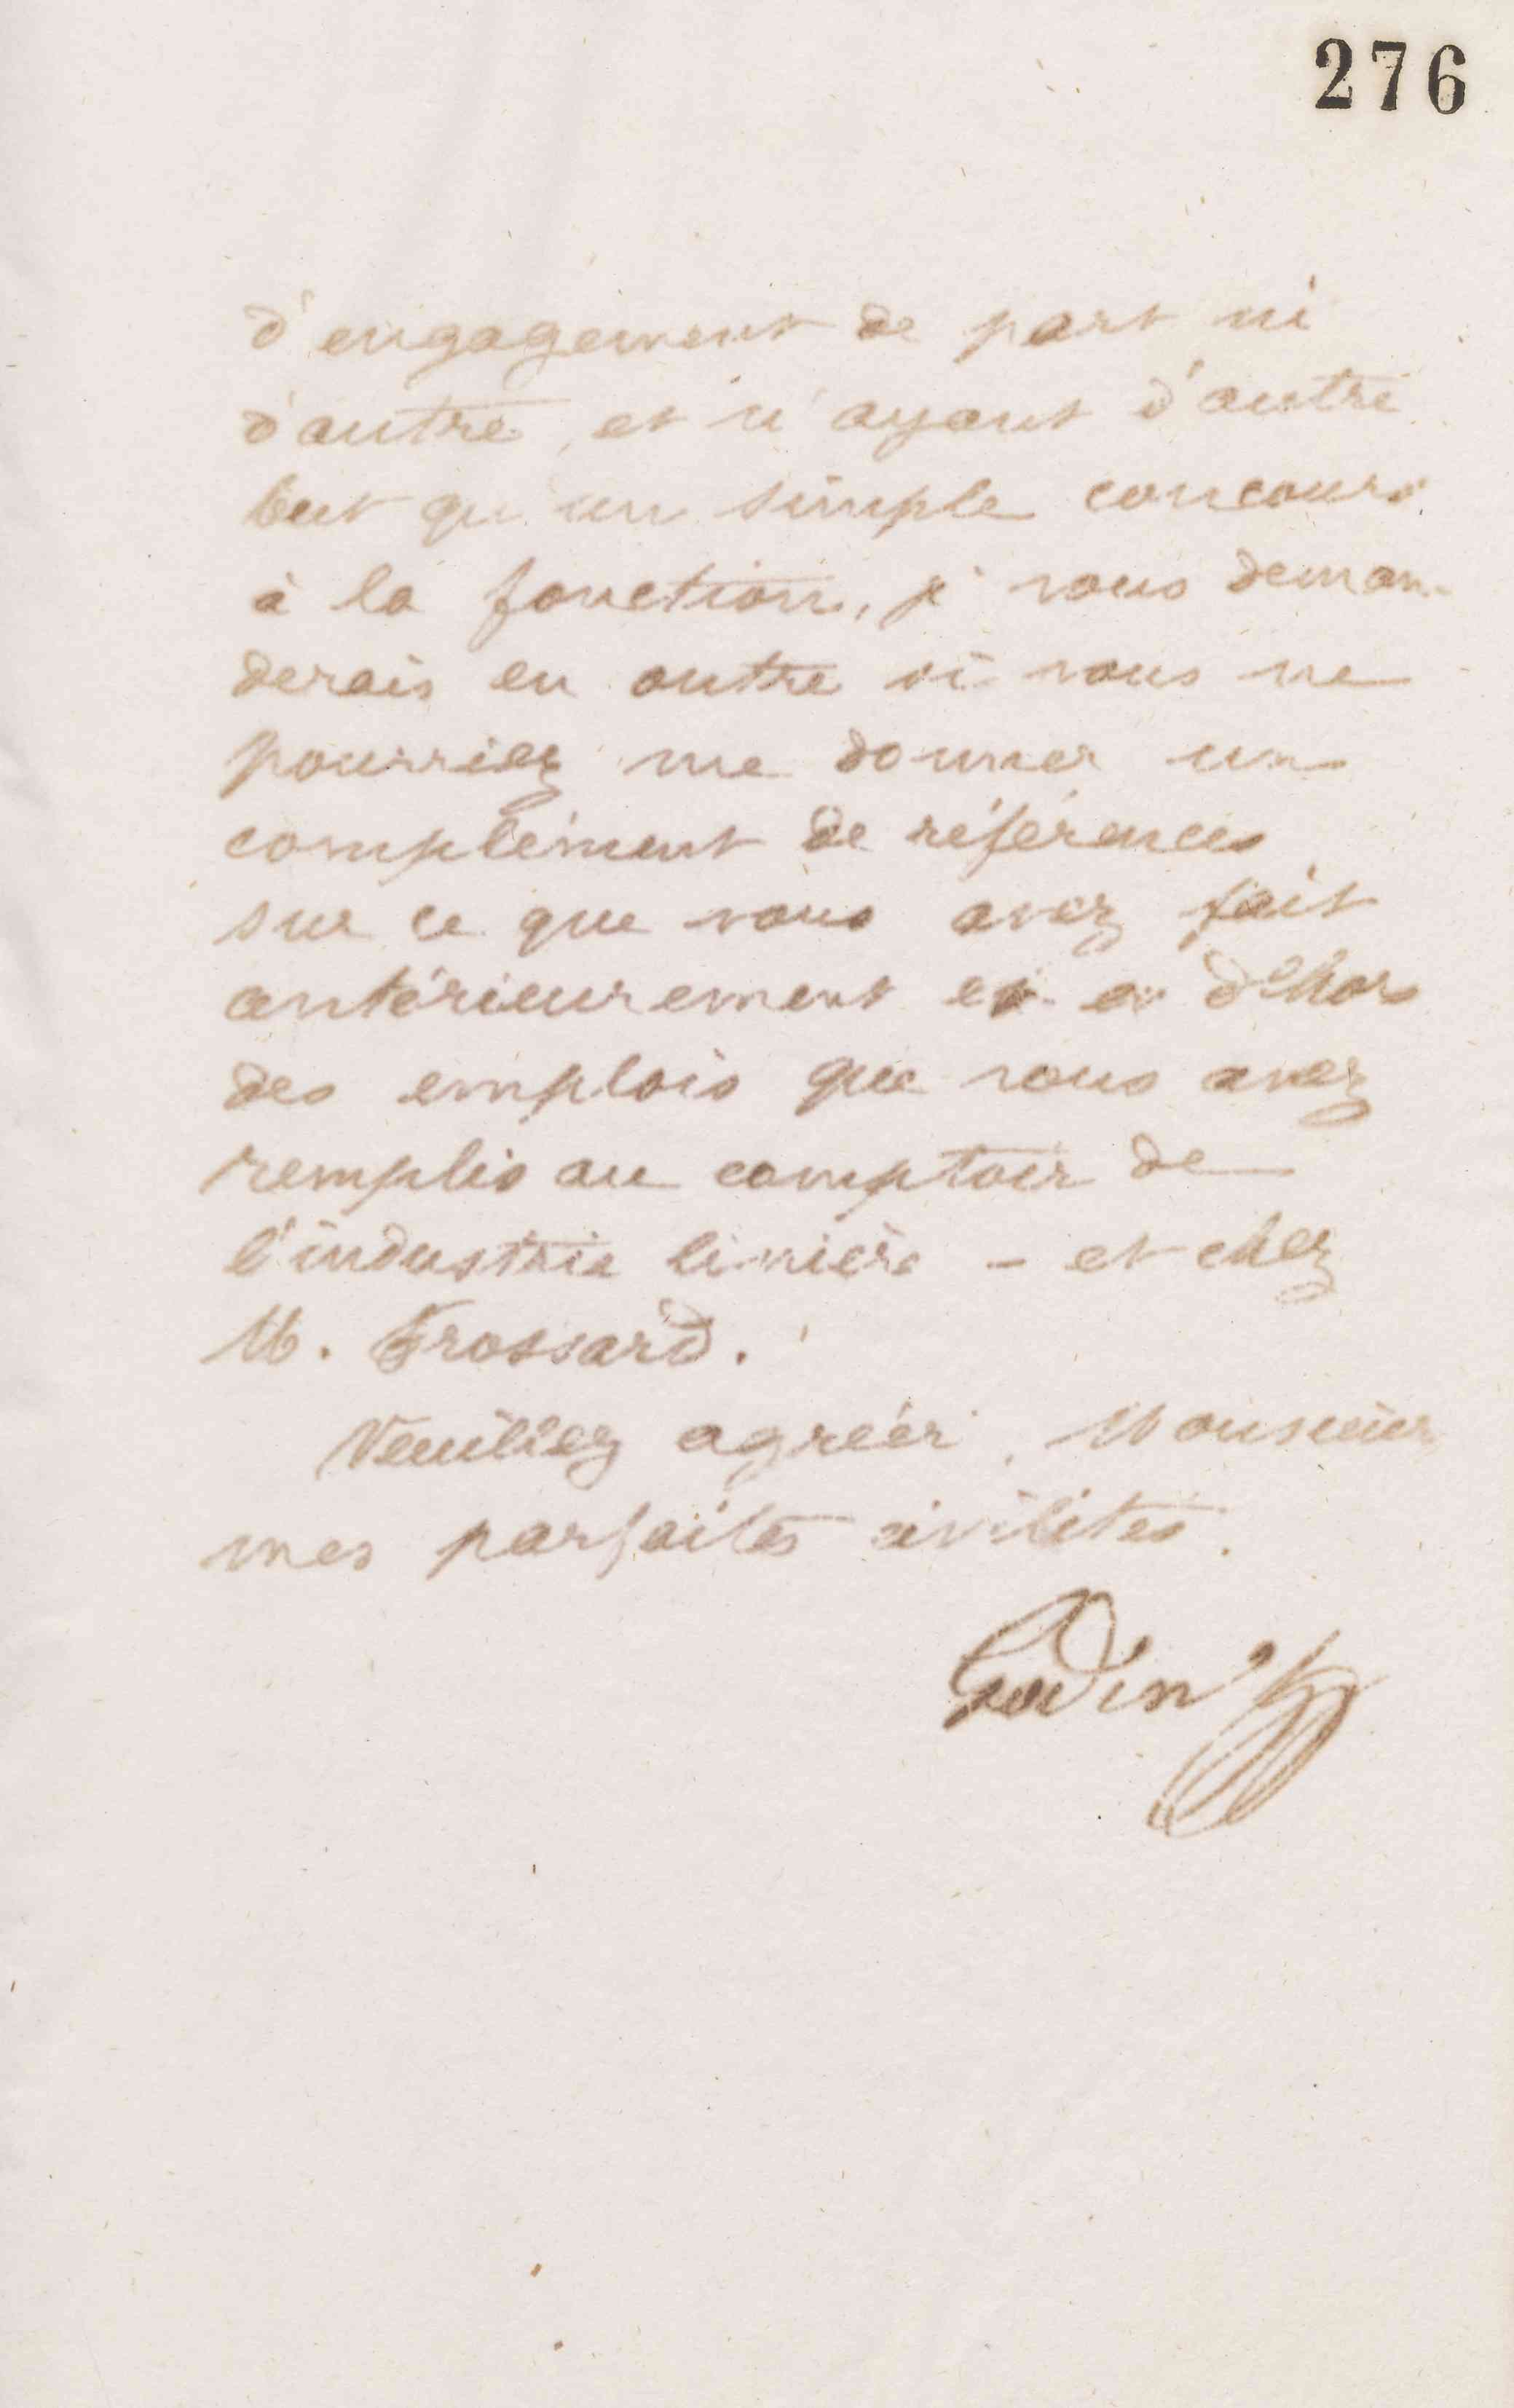 276
d'engagement de part ni
d'autre, et n'ayant d'autre
but qu'un simple concours
à la fonction, je vous deman-
derais en outre si vous ne
pourriez me donner un
complément de références
sur ce que vous avez fait
antérieurement et en dehors
des emplois que vous avez
remplis au comptoir de
l'industrie linière - et chez
M. Frossard.
Veuillez agréer, Monsieur
mes parfaites civilités.
Godin